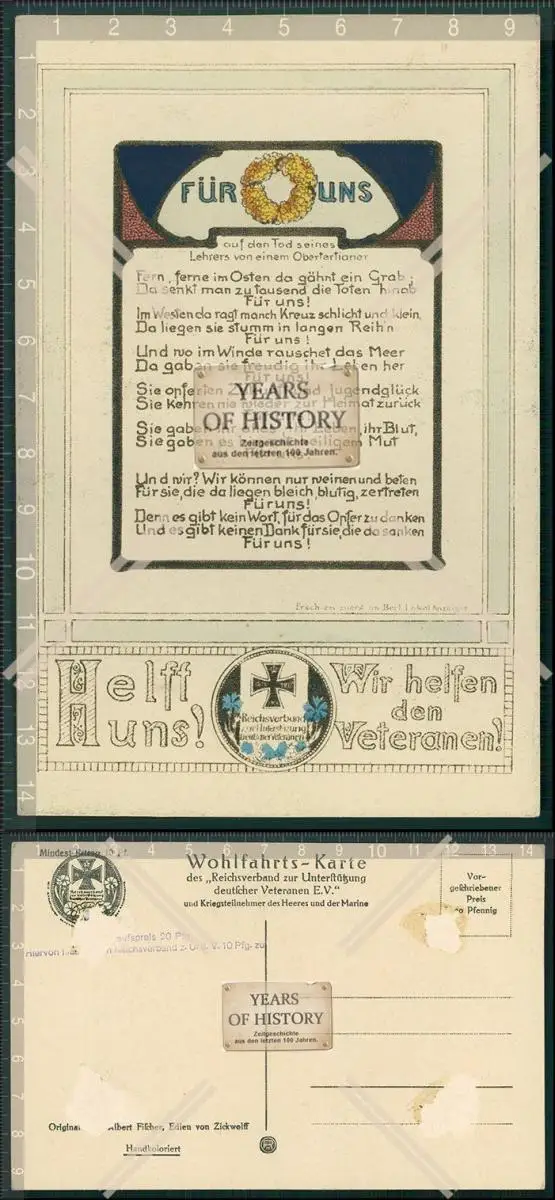 1 2 3 4 5 6 7 8 9
2
3
4
5
6
7
8
9
10
11
12
13
14
FÜR UNS
auf den Tod seines
Lehrers von einem Obertertianer
Fern, ferne im Osten da gähnt ein Grab;
Da senkt man zu tausend die Toten hinab
Für uns!
Im Westen da ragt manch Kreuz schlicht und klein,
Da liegen sie stumm in langen Reih'n
Für uns!
Und wo im Winde rauschet das Meer
Da gaben sie freudig ihr Leben her
Für uns!
Sie opferten Jugendglück
Sie kehren nie wieder zur Heimat zurück
Sie gaben ihr Leben, ihr Blut,
Sie gaben es heiligem Mut
YEARS
OF HISTORY
Zeitgeschichte
aus den letzten 100 Jahren.
Und wir? Wir können nur weinen und beten
Für sie, die da liegen bleich, blutig, zertreten
Für uns!
Denn es gibt kein Wort, für das Opfer zu danken
Und es gibt keinen Dank für sie, die da sanken
Für uns!
Erschien zuerst im Berl. Lokal Anzeiger
Helft uns!
Reichsverband
zur Unterstützung
deutscher Veteranen
Wir helfen
den
Veteranen!
1 2 3 4 5 6 7 8 9 10 11 12 13 14
2
3
4
5
6
7
8
9
Mindest-Betrag 10 Pf.
Wohlfahrts-Karte
des „Reichsverband zur Unterstützung
deutscher Veteranen E.V."
und Kriegsteilnehmer des Heeres und der Marine
Vor-
geschriebener
Preis
Pfennig
20 Pfg.
Hiervon Reichsverband z. Unt. V. 10 Pfg. zu
YEARS
OF HISTORY
Zeitgeschichte
aus den letzten 100 Jahren.
Original Albert Fischer, Edlen von Zickwolff
Handkoloriert